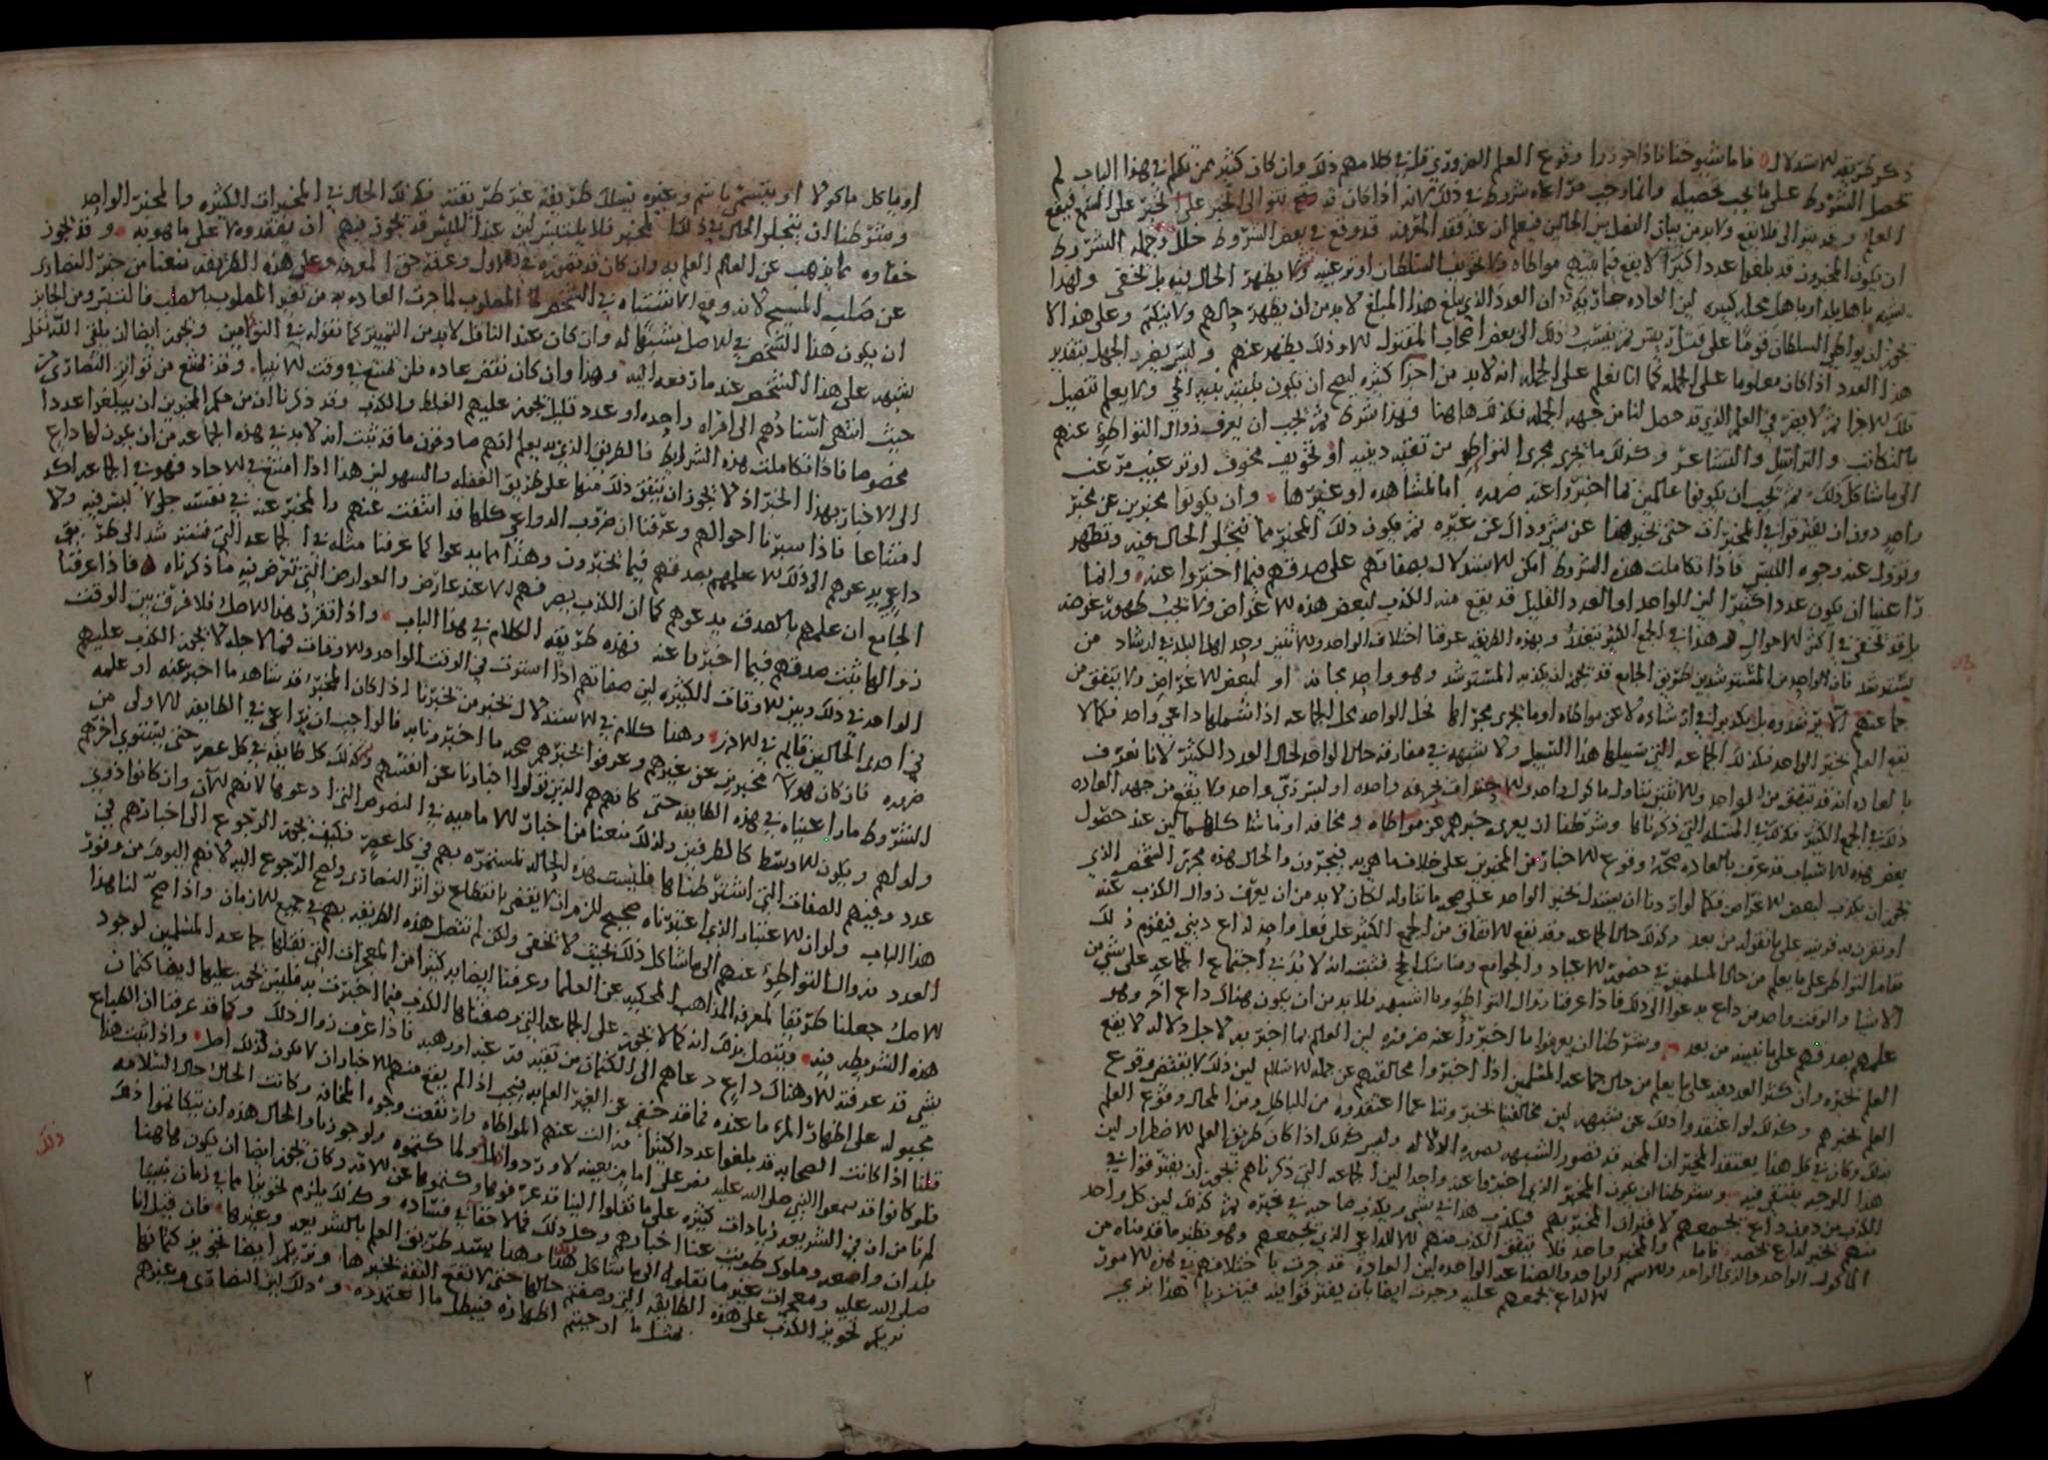 ذكر طريقه للاستدلال فاما شيوخنا فاذا جوزوا وقوع العلم الضروري قل في كلامهم ذلك وان كان كثير ممن تكلم في هذا الباب لم
تحصل الشروط على ما يجب تحصيله وانما وجب مراعاه شروط في ذلك لانه اذا كان قد صح تتوالى الخبر على الخبر على فيقع
العلم وقد يتوالى فلا يقع ولا بد من بيان الفصل بين الحالين فيعلم ان عند فقد المعرفه قد وقع في بعض الشروط خلل وجمله الشروط
ان يكون المخبرون قد بلغوا عددا كثيرا لا يقع فيما بينهم مواطاه ولا تخويف السلطان او ترغيبه ولا يظهر الحال فيه بل تخفى ولهذا
باهل بلد او باهل محله كبيره لان العاده جاريه ان العدد الذي يبلغ هذا المبلغ لا بد من ان يظهر حالهم ولا ينكتم وعلى هذا لا
يجوز ان يواطي السلطان قوما على قتل ثم ينسب ذلك الى بعض اصحاب المقتول الا وذلك يظهر عنهم وليس يضر الجهل بتقدير
هذا العدد اذا كان معلوما على الجمله كما انا نعلم على الجمله انه لا بد من اجزا كثيره ليصح ان يكون بنيه الحي ولا يعلم تفصيل
تلك الاجزا ثم لا يضر في العلم الذي قد حصل لنا من جهه الجمله فكذلك هاهنا فهذا شرط ثم يجب ان يعرف زوال التواطؤ عنهم
بالتكاتب والتراسل والتشاعر وكذلك ما يجرى مجرى التواطؤ من تعقيد دينيه او تخويف مخوف او ترغيب مرغب
الى ما شاكل ذلك ثم يجب ان يكونوا عالمين بما اخبروا عنه ضروره اما لمشاهده او غيرها وان يكونوا مخبرين عن مخبر
واحد دون ان يفترقوا في المخبرات حتى يخبر هذا عن شي وذاك عن غيره ثم يكون ذلك المخبر مما تنجلى الحال فيه وتظهر
وتزول عنه وجوه اللبس فاذا تكاملت هذه الشروط امكن الاستدلال بصفاتهم على صدقهم فيما اخبروا عنه وانما
راعينا ان يكون عددا كثيرا لان الواحد او العدد القليل قد يقع منه الكذب لبعض هذه الاغراض ولا يجب ظهور غرضه
بل قد تخفى في اكثر الاحوال و هذا في الجمع الكثير وبهذه الطريقه عرفنا اختلاف الواحد والاثنين وجد اهل البلد في ارشاد من
يسترشد فان الواحد من المسترشدين طريق الجامع قد يجوز ان يكذبه المسترشد وهو واحد مجانه او لبعض الاغراض ولا يتفق من
جماعتهم الا يرشدوه بل يكذبوا في ارشاده لا عن مواطاه او ما يجرى مجراها تحل الواحد محل الجماعه اذا شملها داعي واحد فكما لا
يقع العلم بخبر الواحد فكذلك الجماعه التي سبيلها هذا السبيل ولا شبهه في مفارقه حال الواحد لحال العدد الكثير لانا نعرف
بالعاده انه قد يتفق من الواحد والاثنين تناول ماكول واحد والاحتراف بحرفه واحده او لبس زي واحد ولا يقع من جهه العاده
ذلك في الجمع الكثير فكذلك في المسله التي ذكرناها وشرطنا ان يعرى خبرهم عن مواطاه ومخافه او ما شاكلهما لان عند حصول
بعض هذه الاسباب قد عرف بالعاده صحه وقوع الاخبار من المخبرين على خلاف ما هي به فيخبرون والحال هذه مجرى الشخص الذي
يجوز ان يكذب لبعض الاغراض فكما لو اردنا ان يستدل بخبر الواحد على صحه ما تناوله لكان لا بد من ان يعرف زوال الكذب عنه
او نقرن به قرينه على ما نقوله من بعد وكذلك حال الجماعه وقد يقع الاتفاق من الجمع الكثير على فعل واحد لداع ديني فيقوم ذلك
مقام التواطؤ على ما يعلم من حال المسلمين في حضور الاعياد والجوامع ومناسك الحج فثبت انه لا بد في اجتماع الجماعه على شي من
الاشيا والوقت واحد من داع يدعوا الى ذلك فاذا عرفنا زوال التواطؤ وما اشبهه فلا بد من ان يكون هناك داع اخر وهو
علمهم بصدقهم على ما نبينه من بعد وشرطنا ان يعرفوا ما اخبروا عنه ضروره لان العالم بما اخبر به لاجل دلاله لا يقع
العلم بخبره وان كثر العدد فيه على ما يعلم من حال جماعه المسلمين اذا اخبروا مخالفيهم عن جمله الاسلام لان ذلك لا يقتضي وقوع
العلم بخبرهم وكذلك لو اعتقدوا ذلك عن شبهه لان مخالفينا يخبروننا عما اعتقدوه من الباطل ومن المحال وقوع العلم
بذلك وكان في كل هذا يعتقد المخبر ان المخبر قد تصور الشبهه بصوره الدلاله وليس كذلك اذا كان طريق العلم الاضطرار لان
هذا الوجه ينتفي فيه وشرطنا ان يكون المخبر الذي اخبروا عنه واحدا لان الجماعه التي ذكرناهم يجوز ان يفترقوا في
الكذب من دون داع يجمعهم لافتراق المخبر بهم فيكذب هذا في شي ويكذب صاحبه في غيره ثم كذلك لان كل واحد
منهم يخبر لداع يخصه فاما والمخبر واحد فلا يتفق الكذب منهم الا للداعي الذي يجمعهم وهو نظير ما قدمناه من
الماكول الواحد والزي الواحد والاسم الواحد والصناعه الواحده لان العاده قد جرت باختلافهم في هذه الامور
الا لداع يجمعهم عليه وجرت ايضا بان يفترقوا فيه فيتزيا هذا بزي
او ياكل ماكولا او يتسمى باسم وغيره يسلك طريقه غير طريقته فكذلك الحال في المخبرات الكثيره والمخبر الواحد
وشرطنا ان يتجلوا الحال في ذلك المخبر فلا يلتبس لان عند اللبس قد يجوز فيهم ان يعتقدوه لا على ما هو به وقد يجوز
خفاوه مما يذهب عن العالم العلم به وان كان قد تصوره في الاول وعرفه حق المعرفه وعلى هذه الطريقه منعنا من خبر النصارى
عن صلب المسيح لانه وقع الاشتباه في الشخص المصلوب لما جرت العاده به من تغير المصلوب بالصلب فالتبس ومن الجايز
ان يكون هذا الشخص في الاصل مشتبها له وان كان عند الناقل لا بد من التمييز كما نقوله في التوامين ويجوز ايضا ان يلقى الله تعلى
شبهه على هذا الشخص عند ما رفعه اليه وهذا وان كان نقض عاده فلن تمتنع في وقت الانبيا وقد تمتنع من تواتر النصارى من
حيث انتهى اسنادهم الى امراه واحده او عدد قليل يجوز عليهم الغلط والكذب وقد ذكرنا ان من حكم المخبرين ان يبلغوا عددا
مخصوصا فاذا تكاملت هذه الشرايط فالطريق الذي به يعلم انهم صادقون ما قد ثبت انه لا بد في هذه الجماعه من ان يكون لها داع
الى الاخبار بهذا الخبر اذ لا يجوز ان يتفق ذلك منها على طريق الغفله والسهو لان هذا اذا امتنع في الاحاد فهو في الجماعه اشد
امتناعا فاذا سبرنا احوالهم وعرفنا ان ضروب الدواعي كلها قد انتفت عنهم والمخبر عنه في نفسه جلي لا لبس فيه ولا
داعي يدعوهم الى ذلك الا علمهم بصدقهم فيما يخبرون وهذا مما يدعوا كما عرفنا مثله في الجماعه التي تسترشد الى طريق
الجامع ان علمهم بالصدق يدعوهم كما ان الكذب يصرفهم الا عند عارض والعوارض التي تعرض فيه ما ذكرناه فاذا عرفنا
زوالها ثبت صدقهم فيما اخبروا عنه فهذه طريقه الكلام في هذا الباب واذا تقرر هذا الاصل فلا فرق بين الوقت
الواحد في ذلك وبين الاوقات الكثيره لان صفاتهم اذا استوت في الوقت الواحد والاوقات فما لاجله لا يجوز الكذب عليهم
في احدى الحالين قايم في الاخرى وهذا كلام في الاستدلال بخبر من يخبرنا اذا كان المخبر قد شاهد ما اخبر عنه او علمه
ضروره فان كان هولا مخبرين عن غيرهم وعرفوا بخبرهم صحه ما اخبرونا به فالواجب ان نراعي في الطايفه الاولى من
الشروط ما راعيناه في هذه الطايفه حتى كانهم هم الذين تولوا اخبارنا عن انفسهم وكذلك كل طايفه في كل عصر حتى يستوى اخرهم
واولهم ويكون الاوسط كالطرفين ولذلك منعنا من اخبار الاماميه في النصوص التي ادعوها لانهم الان وان كانوا ذوي
عدد وفيهم الصفات التي اشترطناها فليست هذه الحاله مستمره بهم في كل عصر فكيف يجوز الرجوع الى اخبارهم في
هذا الباب ولو ان الاعتبار الذي اعتبرناه صحيح للزم ان لا يقضى بانقطاع تواتر النصارى ولصح الرجوع اليه لانهم اليوم من وفور
العدد وزوال التواطؤ عنهم الى ما شاكل ذلك بحيث لا تخفى ولكن لم تتصل هذه الطريقه بهم في جميع الازمان واذا صح لنا هذا
الاصل جعلنا طريقا لمعرفه المذاهب المحكيه عن العلما وعرفنا ايضا به كثيرا من المعجزات التي نقلها جماعه المسلمين لوجود
هذه الشريطه فيه ويتصل بذلك انه كما لا يجوز على الجماعه التي وصفناها الكذب فيما اخبرت به فليس يجوز عليها ايضا كتمان
شي قد عرفته الا وهناك داع دعاهم الى الكتمان من تقيه فاذا عرف زوال ذلك وكما قد عرفنا ان الطباع
مجبوله على اظهار المرء ما عنده فما قد خفي عن الغير العلم به فيجب اذا لم يقع منهم الاخبار ان لا يكون لذلك اصل واذا ثبت هذا
قلنا اذا كانت الصحابه قد بلغوا عددا كثيرا قد زالت عنهم المواطاه وارتفعت وجوه المخافه وكانت الحال حال السلامه
فلو كانوا قد سمعوا النبي صلى الله عليه ينص على امام بعينه لاوردوا ولما كتموه ولو جوزنا والحال هذه ان يتكاتموا ذلك
لم نامن ان في الشريعه زيادات كثيره على ما نقلوا الينا قد عرفوها وكتموها عن الامه وكان يجوز ايضا ان يكون هاهنا
بلدان واسعه وملوك طويت عنا اخبارهم وكل ذلك مما لا خفا في فساده وكذلك يلزم تجويز ما في زمان نبينا
صلى الله عليه ومعجزات غير ما نقلوه الى ما شاكل هذا وهذا يسد طريق العلم بالشريعه وغيرها فان قيل انا
نريكم تجويز الكذب على هذه الطايفه التي وصفتم حالها حتى لا تقع الثقه بخبرها ونريكم ايضا تجويز كتمانها
لمثل ما اوجبتم اظهاره فيبطل ما اعتمدتموه وذلك لان النصارى وغيرهم
ذلك
٢